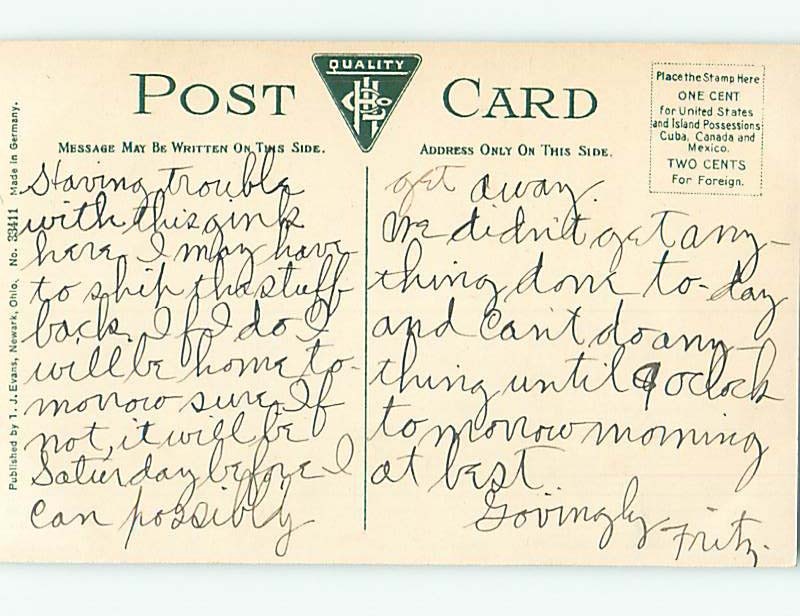 QUALITY
POST CARD
HLCo
MESSAGE MAY BE WRITTEN ON THIS SIDE.
ADDRESS ONLY ON THIS SIDE.
Place the Stamp Here
ONE CENT
for United States
and Island Possessions
Cuba, Canada and
Mexico.
TWO CENTS
For Foreign.
Published by T. J. Evans, Newark, Ohio. No. 33411 Made in Germany.
Having trouble
with this gink
here. I may have
to ship the stuff
back. If I do I
will be home to-
morrow sure. If
not, it will be
Saturday before I
can possibly
get away.
We didn't get any-
thing done to-day
and can't do any-
thing until 9 oclock
tomorrow morning
at best.
Lovingly
Fritz.